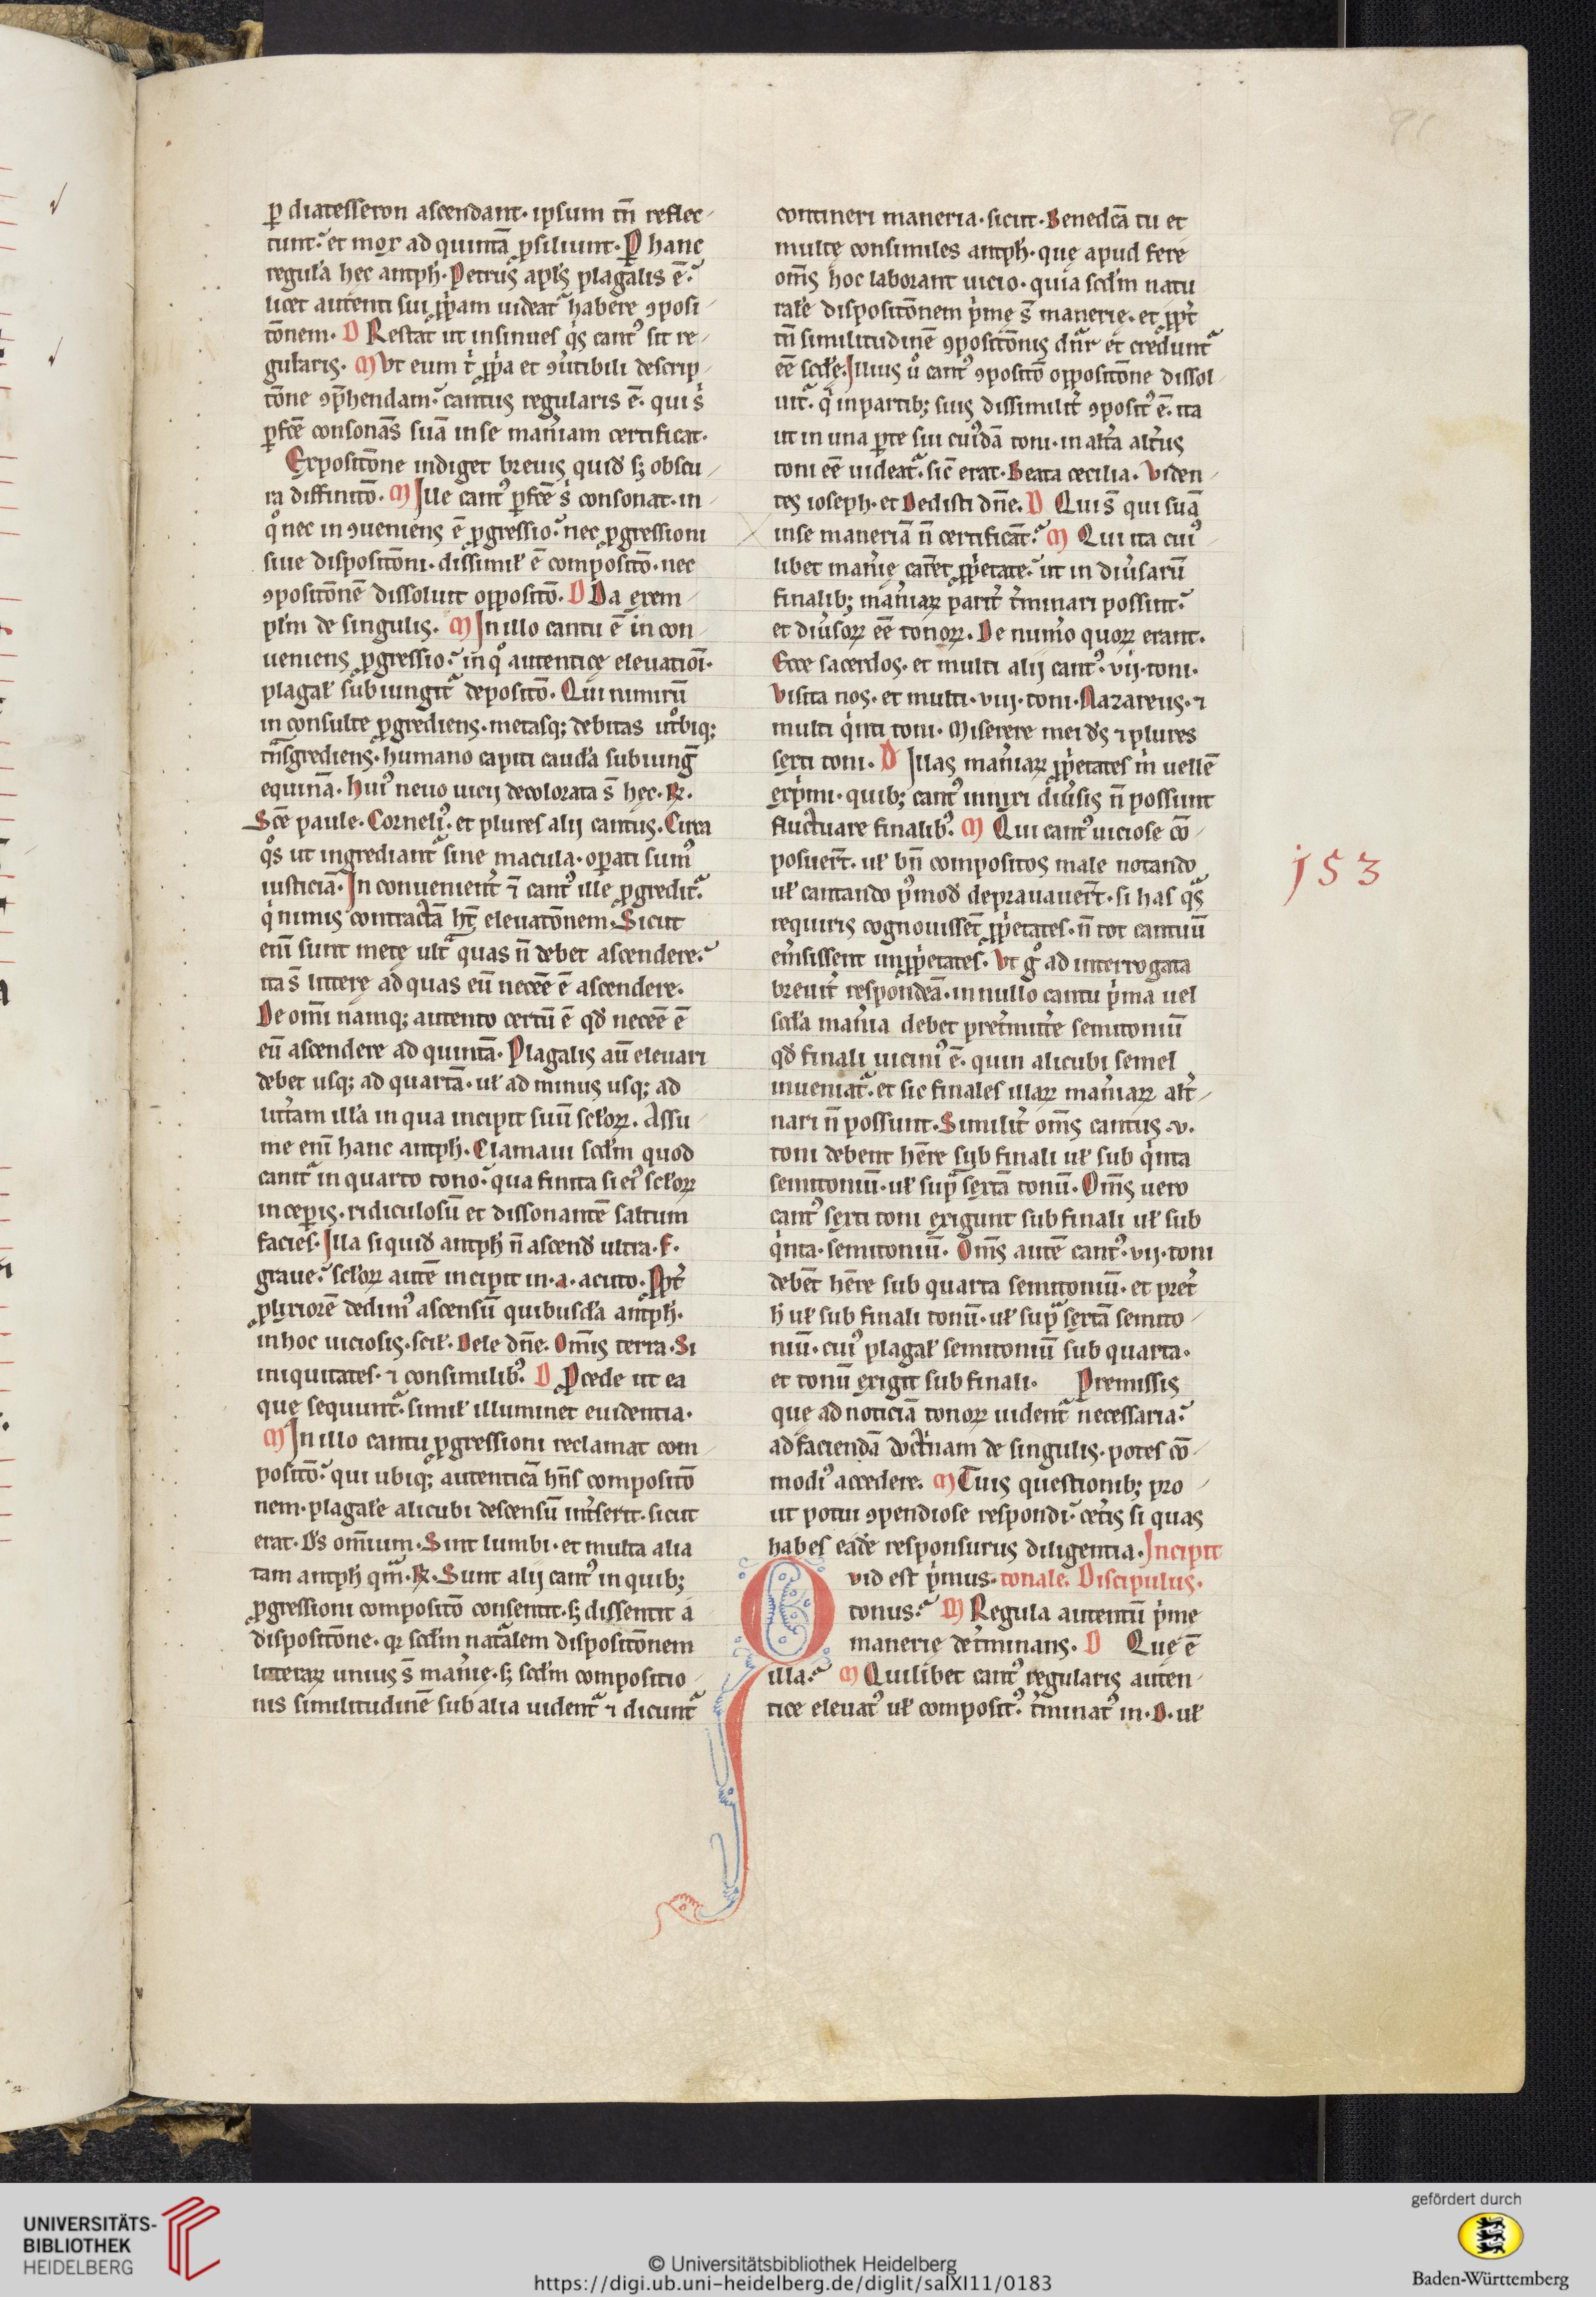 ꝑ diatesseron ascendant· ipsum tn̄ reflec-
tunt· et mox ad quintā ꝓsiliunt· Ꝑ hanc
regulā hec antiph̄· Petrus apl̄s plagalis ē·
licet autenti sui ꝓpͥam uideatᷣ habere ꝯposi-
tōnem· D Restat ut insinues qͥs cantꝰ sit re-
gularis· M Vt eum t̾ ꝓpͥa et ꝯu̾tibili descrip-
tōne ꝯp̄hendam· cantus regularis ē· qui s̾
ꝑfcē consonās suā inse man̾iam certificat·
Expositōne indiget breuis quid̾ sꝫ obscu-
ra diffinitō· M Ille cantꝰ ꝑfcē s̾ consonat· in
qͦ nec in ꝯueniens ē ꝓgressio· nec ꝓgressioni
siue dispositōni· dissimil̾ ē compositō· nec
ꝯpositōnē dissoluit oppositō· D Da exem-
pl̄m de singulis· M In illo cantu ē in con-
ueniens ꝓgressio· in qͦ autentice eleuatiōi·
plagal̾ subiungitᷣ depositō· Qui nimirū
in consulte ꝓgrediens· metasqꝫ debitas ut̾biqꝫ
tn̄sgrediens· humano capiti caudā subiung̾
equinā· Huiꝰ neuo uicij decolorata s̄ hec· ℞·
Scē paule· Cornelꝰ· et plures alij cantus· Circa
qͦs ut ingrediantᷣ sine macula· oꝑati sumꝰ
iusticiā· In conuenient̾ ⁊̄ cantꝰ ille ꝓgreditᷣ·
qͥ nimis contractā ht̄ eleuatōnem· Sicut
eni̅ sunt mete ultᷓ quas n̄ debet ascendere·
ita s̄ littere ad quas eū necēe ē ascendere·
De omi̅ namqꝫ autento certū ē qd̾ necēe ē
eū ascendere ad quintā· Plagalis aū eleuari
debet usqꝫ ad quartā· ul̾ ad minus usqꝫ ad
litt̾am illā in qua incipit suū sclo̾ꝝ· Assu-
me eni̅ hanc antiph̄· Clamaui scdm̄ quod
canitᷣ in quarto tono· qua finita si eiꝰ sclo̾ꝝ
inceꝑis· ridiculosū et dissonantē saltum
facies· Illa siquid̾ antiph̄ n̄ ascend̾ ultra· f·
graue· sclo̾ꝝ autē incipit in· a· acuto· Ꝓpt̾
ꝓlixiorē dedimꝰ ascensū quibusdā antiph̄·
in hoc uiciosis· scil̾· Dele dn̄e· Omīs terra· Si
iniquitates· ⁊ consimilibꝰ· D Ꝓcede ut ea
que sequuntᷣ· simil̾ illuminet euidentia·
M In illo cantu ꝓgressioni reclamat com-
positō· qui ubiqꝫ autenticā hn̄s compositō
nem· plagale alicubi descensū int̾serit· sicut
erat· Ds̾ omīum· Sint lumbi· et multa alia
tam antiph̄ qm̄· ℞· Sunt alij cantꝰ in quibꝫ
ꝓgressioni compositō consentit· sꝫ dissentit a
dispositōne· qꝛ scdm̄ natᷓalem dispositōnem
litteraꝝ unius s̄ man̾ie· sꝫ scdm̄ compositio-
nis similitudinē sub alia uidentᷣ ⁊ dicuntᷣ
contineri maneria· sicut· Benedcā tu et
multe consimiles antiph̄· que apud fere
om̄s hoc laborant uicio· quia scdm̄ natu
rale̅ dispositōnem pͥme s̄ manerie· et ꝓpt̾
tn̄ similitudinē ꝯpositōnis dn̄r et creduntᷣ
ēe scde̅· Illius u̾ cantꝰ ꝯpositō oppositōne dissol-
uitᷣ· qͥ in partibꝫ suis dissimilit̾ ꝯpositꝰ ē· ita
ut in una ꝑte sui cuiꝰdā toni· in alt̾a alt̾ius
toni ēe uideatᷣ· sic̄ erat· Beata cecilia· Viden-
tes ioseph· et Dedisti dn̄e· D Quis̄ qui suā
inse maneriā n̄ certificat̄· M Qui ita cuiꝰ-
libet man̾ie car̾et ꝓpͥetate· ut in diu̾sarū
finalibꝫ man̾iaꝝ parit̾ t̾minari possint·
et diu̾soꝝ ēe tonoꝝ· De num̾o quoꝝ erant·
Ecce sacerdos· et multi alij cantꝰ· vij· toni·
Visita nos· et multi· viij· toni· Nazareus· ⁊
multi qͥnti toni· Miserere mei ds̾ ⁊ plures
sexti toni· D Illas man̾iaꝝ ꝓpͥetates in̾ uellē
expͥmi· quibꝫ cantꝰ inniti diu̾sis n̄ possunt
fluctuare finalibꝰ· M Qui cantꝰ uiciose cō-
posuer̄t· ul̾ bn̄ compositos male notando
ul̾ cantando pꝰmod̾ deprauauer̄t· si has qᷓs
requiris cognouissēt ꝓpͥetates· n̄ tot cantuū
em̾sissent inꝓpͥetates· Vt gͦ ad interrogata
breuit̾ respondeā· in nullo cantu pͥma uel
scd̄a man̾ia debet pret̾mitt̾e semitoniū
qd̾ finali uiciniꝰ ē· quin alicubi semel
inueniatᷣ· et sic finales illaꝝ man̾iaꝝ alt̾-
nari n̄ possunt· Similit̾ om̄s cantus· v·
toni debent hēre sub finali ul̾ sub qͥnta
semitoniū· ul̾ supᷓ sextā tonū· Om̄s uero
cantꝰ sexti toni exigunt sub finali ul̾ sub
qͥnta· semitoniū· Om̄s autē cantꝰ· vij· toni
debēt hēre sub quarta semitoniū· et pret̾
h̾ ul̾ sub finali tonū· ul̾ supᷓ sextā semito-
niū· cuiꝰ plagal̾ semitoniū sub quarta·
et tonū exigit sub finali· Premissis
que ad noticiā tonoꝝ uidentᷣ necessaria·
ad faciendā doctͥnam de singulis· potes cō-
modiꝰ accedere· M Tuis questionibꝫ pro-
ut potui ꝯpendiose respondi· cet̾is si quas
habes eādē responsurus diligentia· Incipit
Qvid est pͥmus· tonale· Discipulus·
tonus· M Regula autentū pͥme
manerie det̾minans· D Que ē
illa· M Quilibet cantꝰ regularis auten-
tice eleuatꝰ ul̾ compositꝰ· t̾minatꝰ in· D· ul̾
153
UNIVERSITÄTS-
BIBLIOTHEK
HEIDELBERG
© Universitätsbibliothek Heidelberg
https://digi.ub.uni-heidelberg.de/diglit/salXI11/0183
gefördert durch
Baden-Württemberg